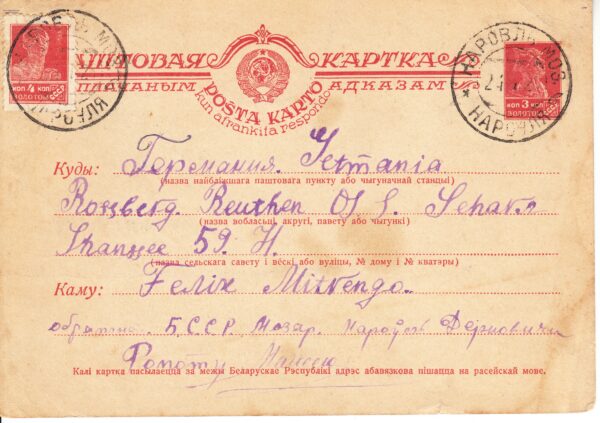 ПАШТОВАЯ КАРТКА
З АПЛАЧАНЫМ АДКАЗАМ
POŜTA KARTO
kun afrankita respondo
КОП 4 КОП
ЗОЛОТОМ
КОП 3 КОП
ЗОЛОТОМ
НАРОВЛЬ МОЗ.
НАРОЎЛЯ
Куды: Германия. Germania
(назва найбліжшага паштовага пункту або чыгуначнай станцыі)
Rossberg. Beuthen O/S. Schar
(назва вобласьці, акругі, павету або чыгункі)
59. II.
(назва сельскага савету і вёскі або вуліцы, № дому і № кватэры)
Каму: Felix Mitrenga.
обратно. БССР, Мозар. Нароўль
Калі картка пасылаецца за межы Беларускае Рэспублікі адрэс абавязкова пішацца на расейскай мове.